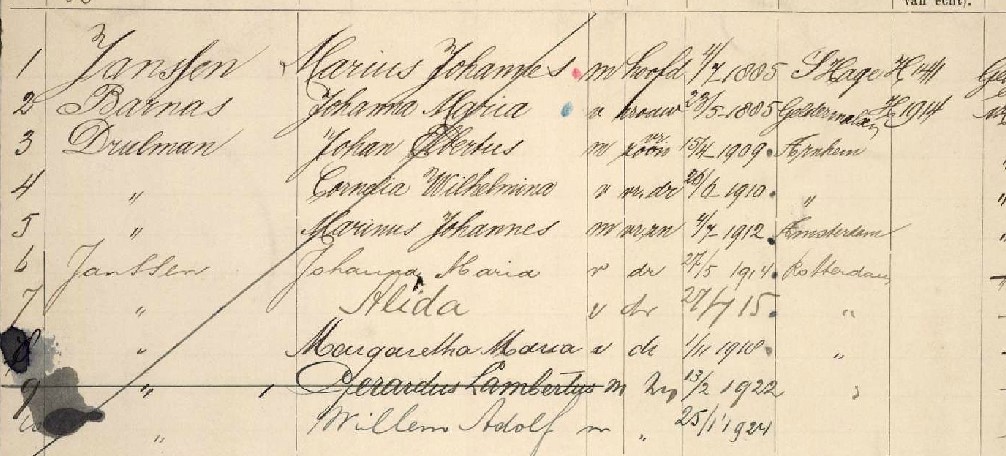 van echt).
1 Janssen Marius Johannes m hoofd 4/7 1885 S Hage H 1914
2 Barnas Johanna Maria v vrouw 23/5 1885 H 1914
3 Drulman Johan Elbertus m zoon 15/4 1909. Arnhem
4 " Cornelia Wilhelmina v vr. dr 26/6 1910. "
5 " Marinus Johannes m vr. zn 4/7 1912. Amsterdam
6 Janssen Johanna Maria v dr 27/5 1914. Rotterdam
7 " Alida v dr 27/7 15. "
8 " Margaretha Maria v dr 1/11 1918. "
9 " Gerardus Lambertus m zn 13/2 1922 "
" Willem Adolf m " 25/1 1924